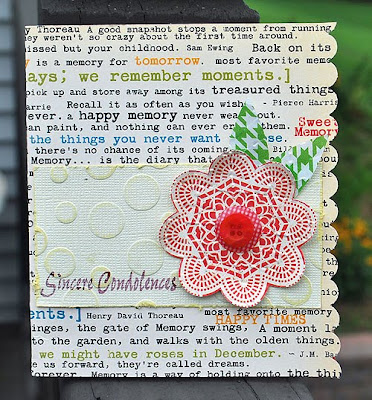 y Thoreau A good snapshot stops a moment from running
hey weren't so crazy about the first time around.
missed but your childhood. Sam Ewing Back on its
is a memory for tomorrow. most favorite mem
ays; we remember moments.]
pick up and store away among its treasured things
arrie Recall it as often as you wish, - Pierce Harris
ever. a happy memory never wear out.
an paint, and nothing can ever them. Sweet
the things you never want ose. Memory
there's no chance of its coming. Bi
Memory... is the diary that
Sincere Condolences
ents.] Henry David Thoreau most favorite memory
HAPPY TIMES
inges, the gate of Memory swings, A moment la
to the garden, and walks with the olden things.
we might have roses in December. ~ J.M. Ba
ke us forward, they're called dreams.
erever. Memory is a way of holding onto the thi